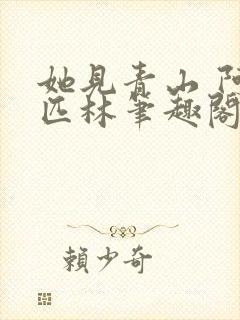 她見青山 阿
匹林筆趣閣
賴少奇